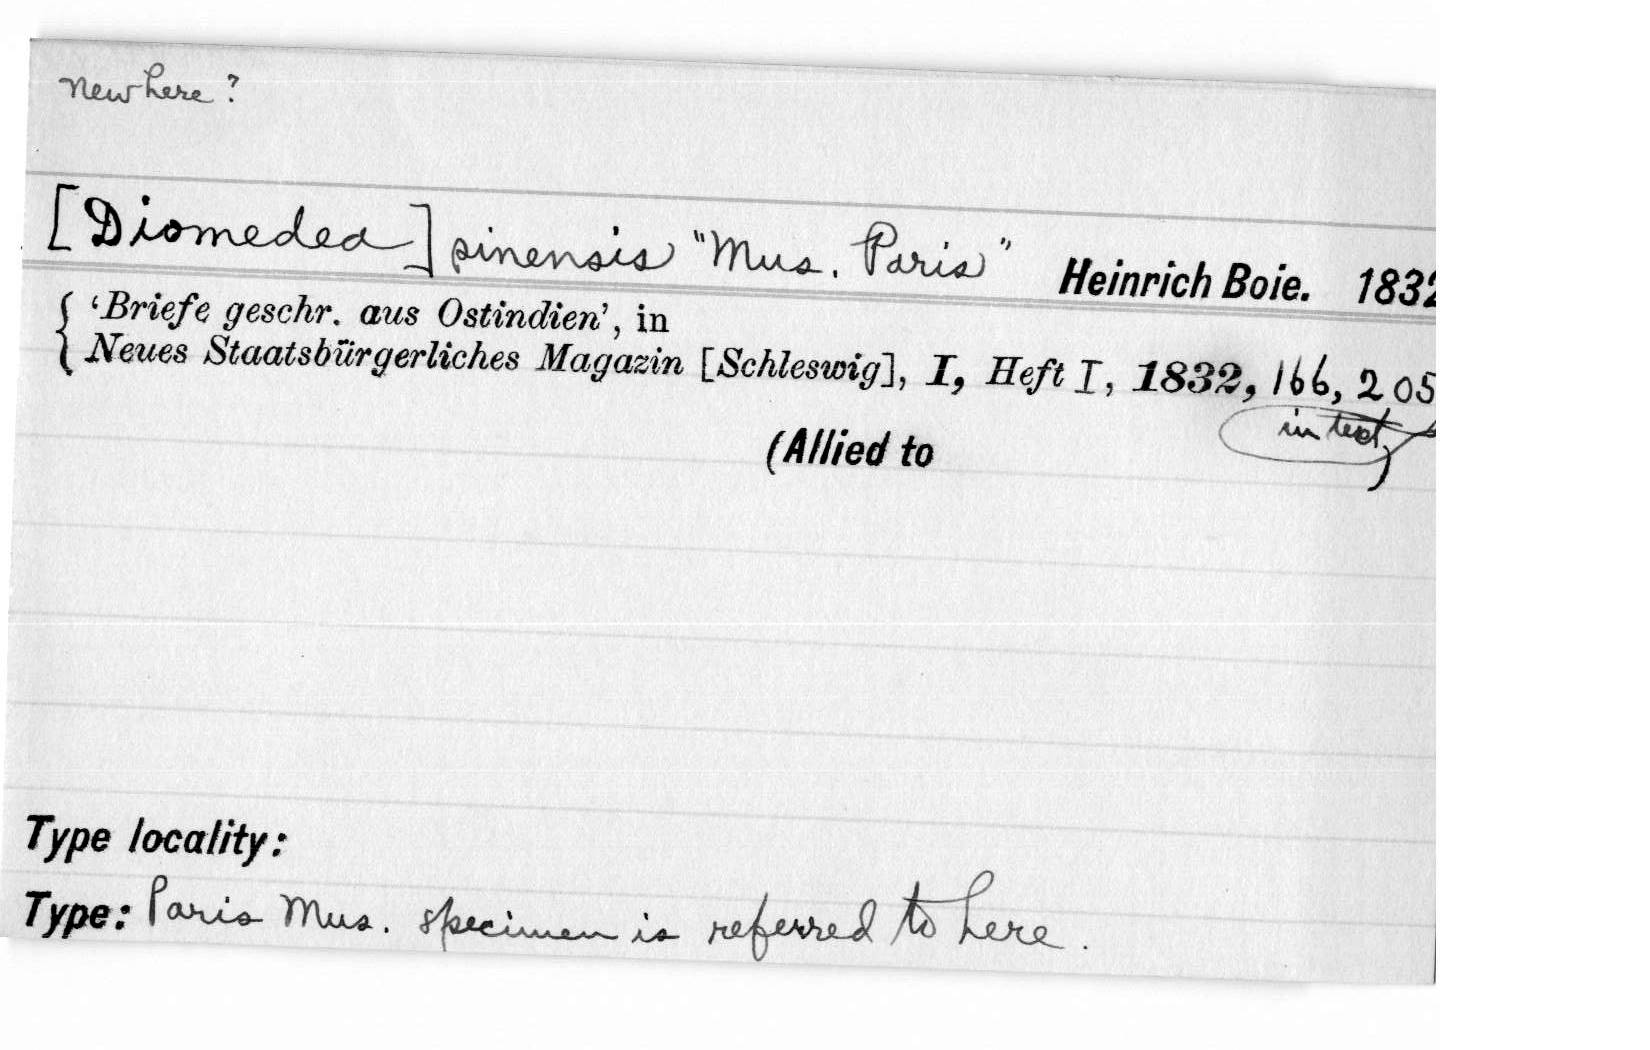 New here ?
[Diomedea] pinensis "Mus. Paris" Heinrich Boie. 1832
'Briefe geschr. aus Ostindien', in
Neues Staatsbürgerliches Magazin [Schleswig], I, Heft I, 1832, 166, 205
in text
(Allied to )
Type locality:
Type: Paris Mus. specimen is referred to here.